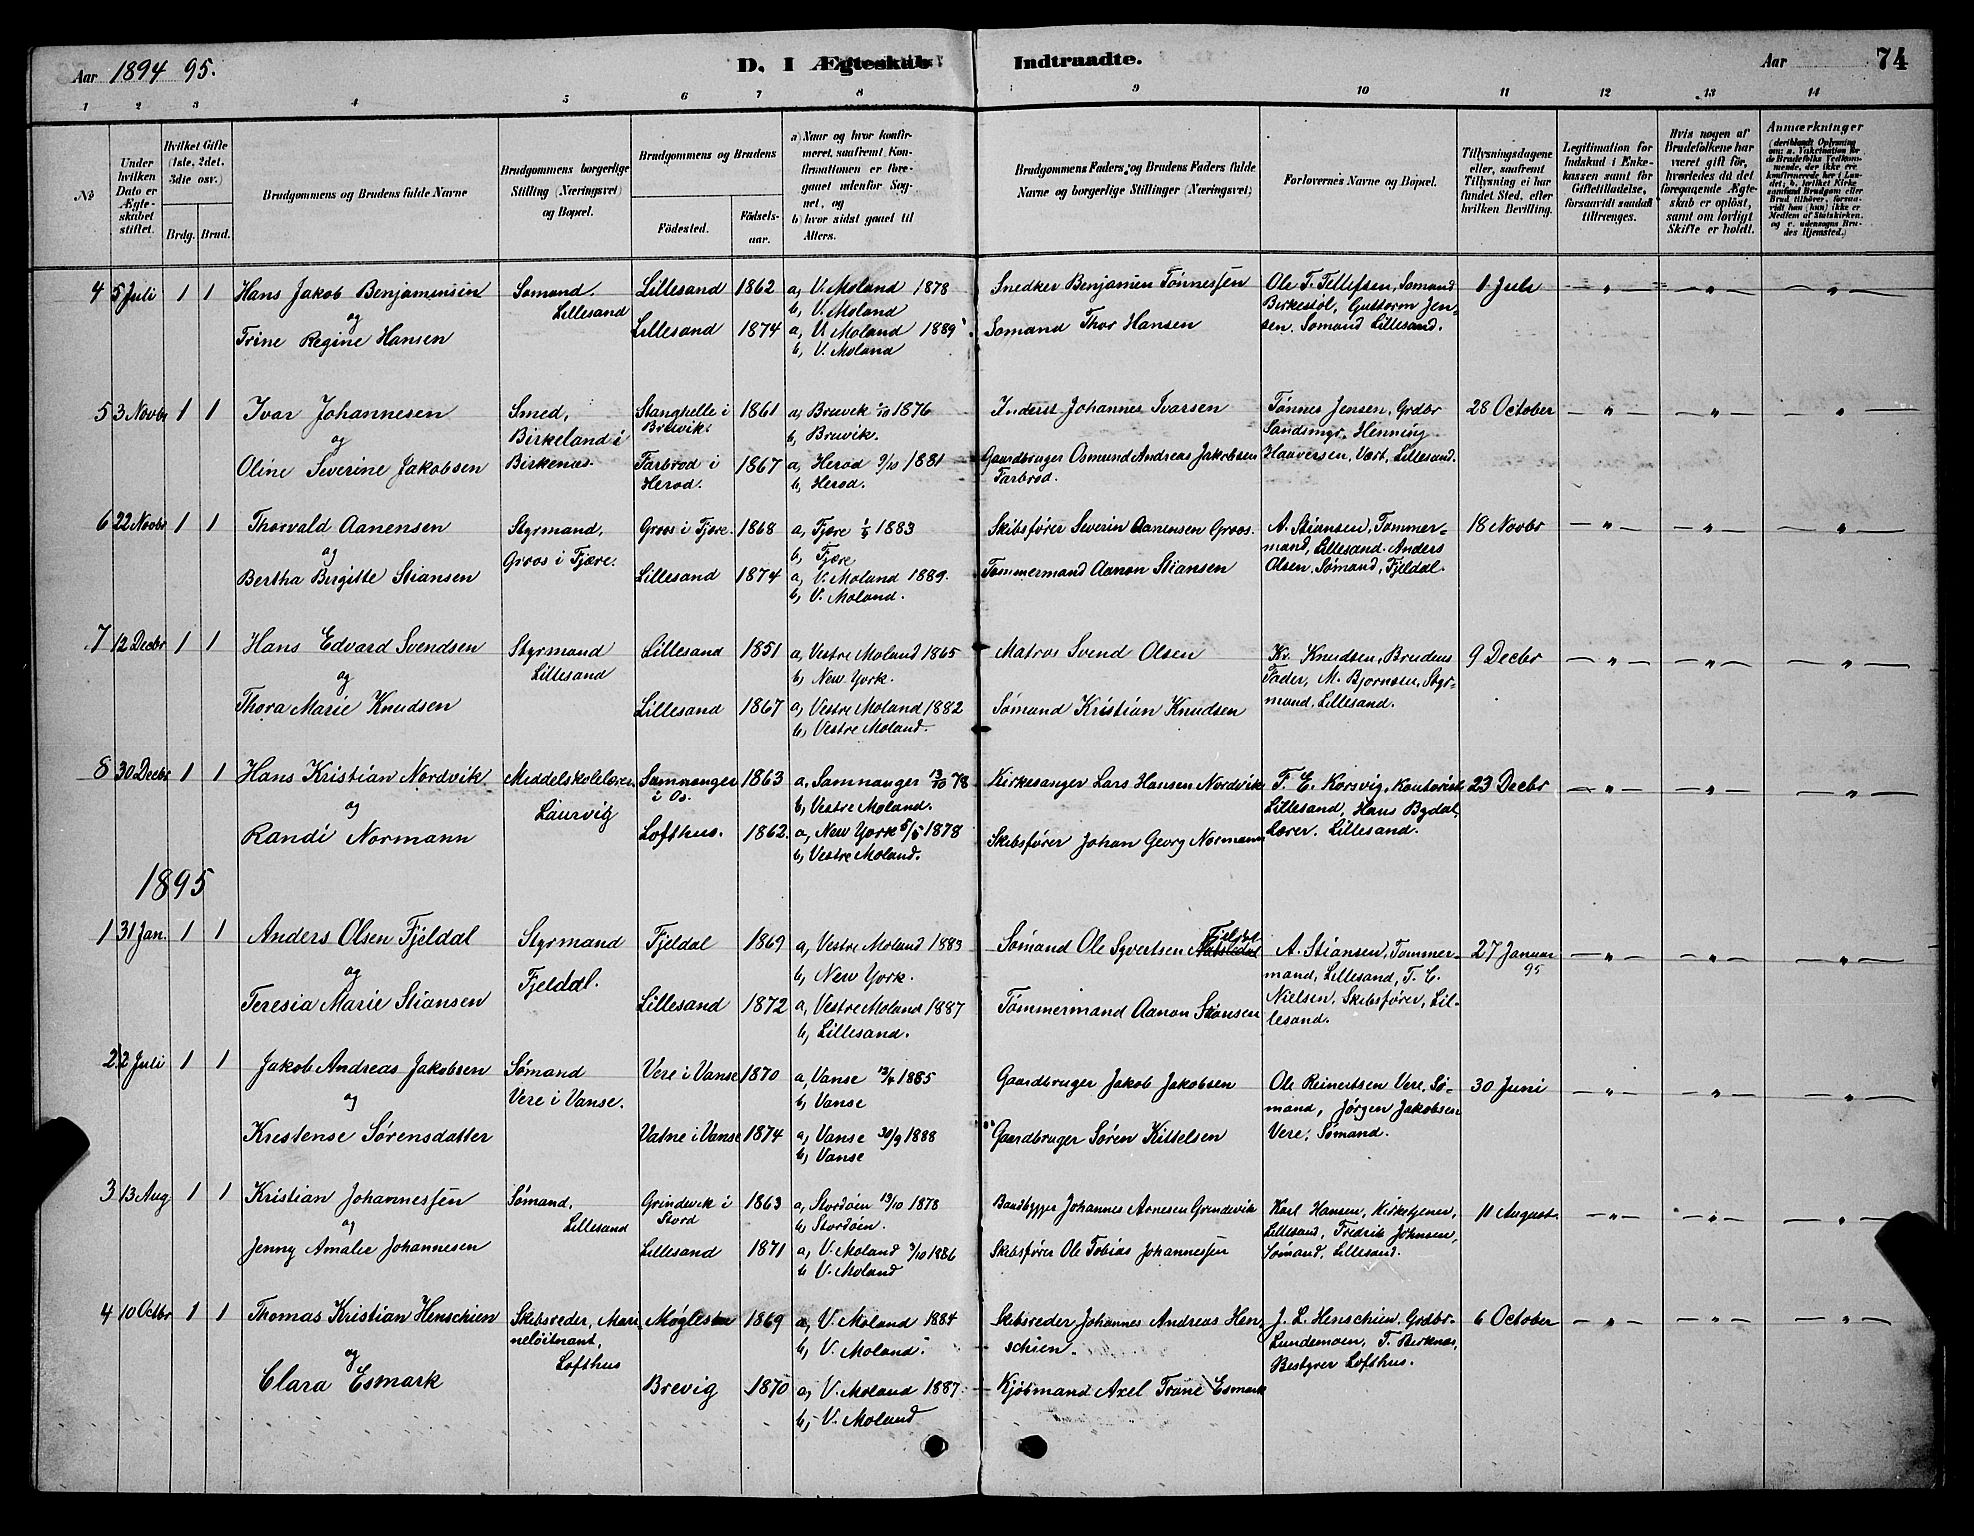 Aar 1894 95.
D. I Ægteskab Indtraadte.
Aar
74
1 2 3 4 5 6 7 8 9 10 11 12 13 14
No
Under hvilken Dato er Ægteskabet stiftet.
Hvilket Gifte (1ste, 2det, 3die osv.)
Brdg. Brud.
Brudgommens og Brudens fulde Navne
Brudgommens borgerlige Stilling (Næringsvei) og Bopæl.
Brudgommens og Brudens
Födested.
Födsels-aar.
a) Naar og hvor konfirmeret, saafremt Konfirmationen er foregaaet udenfor Sognet, og
b) hvor sidst gaaet til Alters.
Brudgommens Faders og Brudens Faders fulde Navne og borgerlige Stillinger (Næringsvei)
Forlovernes Navne og Bopæl.
Tillysningsdagene eller, saafremt Tillysning ei har fundet Sted, efter hvilken Bevilling.
Legitimation for Indskud i Enkekassen samt for Giftetilladelse, forsaavidt saadan tiltrænges.
Hvis nogen af Brudefolkene har været gift før, hvorledes da det foregaaende Ægteskab er oplöst, samt om lovligt Skifte er holdt.
Anmærkninger
4 5 Juli 1 1 Hans Jakob Benjaminsen Sømand. Lillesand 1862 a, V. Moland 1878 Snedker Benjamin Tønnessen Ole T. Tellefsen, Sømand 1 Juli
og Lillesand b, V. Moland Birkestøl, Guttorm Jen-
Trine Regine Hansen Lillesand 1874 a, V. Moland 1889 Sømand Thor Hansen sen, Sømand Lillesand.
b, V. Moland
5 3 Novbr 1 1 Ivar Johannesen Smed, Stanghelle i 1861 a, Bruvik 1/10 1876 Inderst Johannes Ivarsen Tønnes Jensen, Grdbr 28 October
og Birkeland i Bruvik. b, Bruvik. Sandsmyr, Henning
Oline Severine Jakobsen Birkenæs. Tarbrod i 1867 a, Herod 9/10 1881 Gaardbruger Osmund Andreas Jakobsen Haaversen, Vært, Lillesand.
Herod. b, Herod. Tarbrod.
6 22 Novbr 1 1 Thorvald Aanensen Styrmand, Groos i Fjære. 1868 a, Fjære 1883 Skibsfører Severin Aanensen Groos. A. Stiansen, Tømmer- 18 Novbr
og Groos i Fjære. b, Fjære mand, Lillesand. Anders
Bertha Birgitte Stiansen Lillesand 1874 a, V. Moland 1889. Tømmermand Aanon Stiansen Olsen, Sømand, Fjeldal.
b, V. Moland.
7 12 Decbr 1 1 Hans Edvard Svendsen Styrmand Lillesand 1851 a, Vestre Moland 1865 Matros Svend Olsen Kr. Knudsen, Brudens 9 Decbr
og Lillesand b, New York. Fader, M. Bjornsen, Styr-
Thora Marie Knudsen Lillesand 1867 a, Vestre Moland 1882 Sømand Kristian Knudsen mand, Lillesand.
b, Vestre Moland.
8 30 Decbr 1 1 Hans Kristian Nordvik Middelskolelærer Samnanger 1863 a, Samnanger 13/10 78 Kirkesanger Lars Hansen Nordvik T. E. Korsvig, Kontorist 23 Decbr
og Laurvig i Os. b, Vestre Moland. Lillesand, Hans Bydal,
Randi Normann Lofthus. 1862. a, New York 5/5 1878 Skibsfører Johan Georg Normann Lærer, Lillesand.
b, Vestre Moland.
1895
1 31 Jan. 1 1 Anders Olsen Fjeldal Styrmand Fjeldal 1869 a, Vestre Moland 1883 Sømand Ole Syvertsen Fjeldal A. Stiansen, Tømmer- 27 Januar 95
og Fjeldal. b, New York. mand, Lillesand, T. C.
Teresia Marie Stiansen Lillesand 1872 a, Vestre Moland 1887 Tømmermand Aanon Stiansen Nielsen, Skibsfører, Lil-
b, Lillesand. lesand.
2 2 Juli 1 1 Jakob Andreas Jakobsen Sømand Vere i Vanse 1870 a, Vanse 1885 Gaardbruger Jakob Jakobsen Ole Reinertsen Vere, Sø- 30 Juni
og Vere i Vanse. b, Vanse mand, Jørgen Jakobsen
Kristense Sörensdatter Vatne i Vanse 1874 a, Vanse 30/9 1888 Gaardbruger Sören Kittelsen Vere, Sømand.
b, Vanse
3 13 Aug 1 1 Kristian Johannessen Sømand, Grindevik i 1863 a, Stordöen 13/10 1878 Baadbygger Johannes Arnesen Grindevik Karl Hansen, Kirketjener, 11 August.
og Lillesand Stord b, Stordöen. Lillesand, Fredrik Johnsen,
Jenny Amalie Johannesen Lillesand 1871 a, V. Moland 3/10 1886 Skibsfører Ole Tobias Johannessen Sømand, Lillesand.
b, V. Moland
4 10 Octbr 1 1 Thomas Kristian Henschien Skibsreder, Mari- Møglestu 1869 a, V. Moland 1884 Skibsreder Johannes Andreas Hen- J. L. Henschien, Grdbr- 6 October
og neløitnant, b, V. Moland. schien. Lundemoen, T. Birknes,
Clara Esmark Lofthus Brevig 1870 a, V. Moland 1887. Kjøbmand Axel Trane Esmark Bestyrer Lofthus.
b, V. Moland